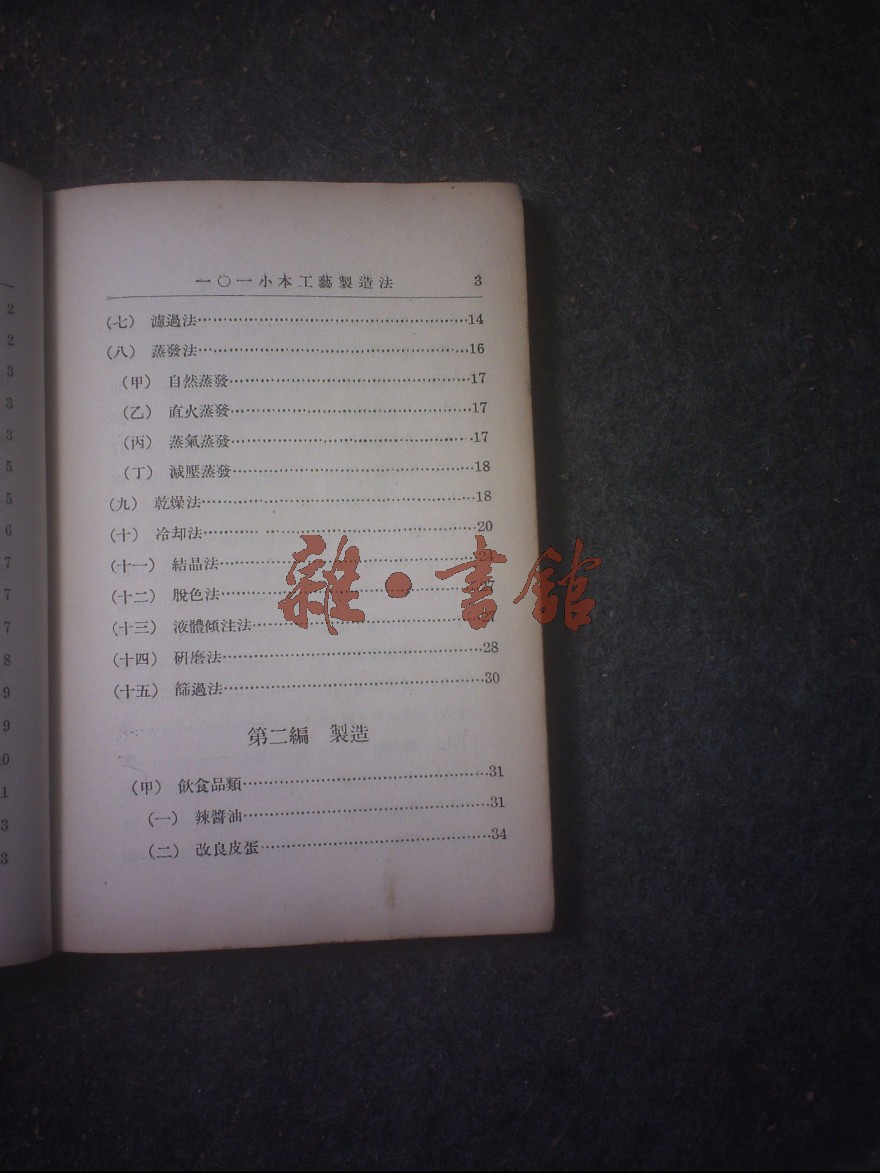 一〇一小本工藝製造法 3
(七) 濾過法……14
(八) 蒸發法……16
(甲) 自然蒸發……17
(乙) 直火蒸發……17
(丙) 蒸氣蒸發……17
(丁) 減壓蒸發……18
(九) 乾燥法……18
(十) 冷却法……20
(十一) 結晶法……
(十二) 脫色法……
(十三) 液體傾注法……
(十四) 研磨法……28
(十五) 篩過法……30
第二編 製造
(甲) 飲食品類……31
(一) 辣醬油……31
(二) 改良皮蛋……34
雜·書館
2
2
3
3
3
5
5
6
7
7
7
8
9
9
0
1
3
3